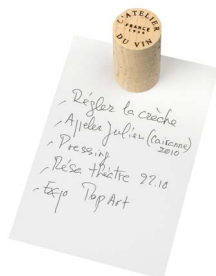 L'ATELIER
DU VIN
FRANCE
- Régler la crèche
- Appeler Julien (Cairanne)
2010
- Pressing
- Résa théâtre 22.10
- Expo Pop Art